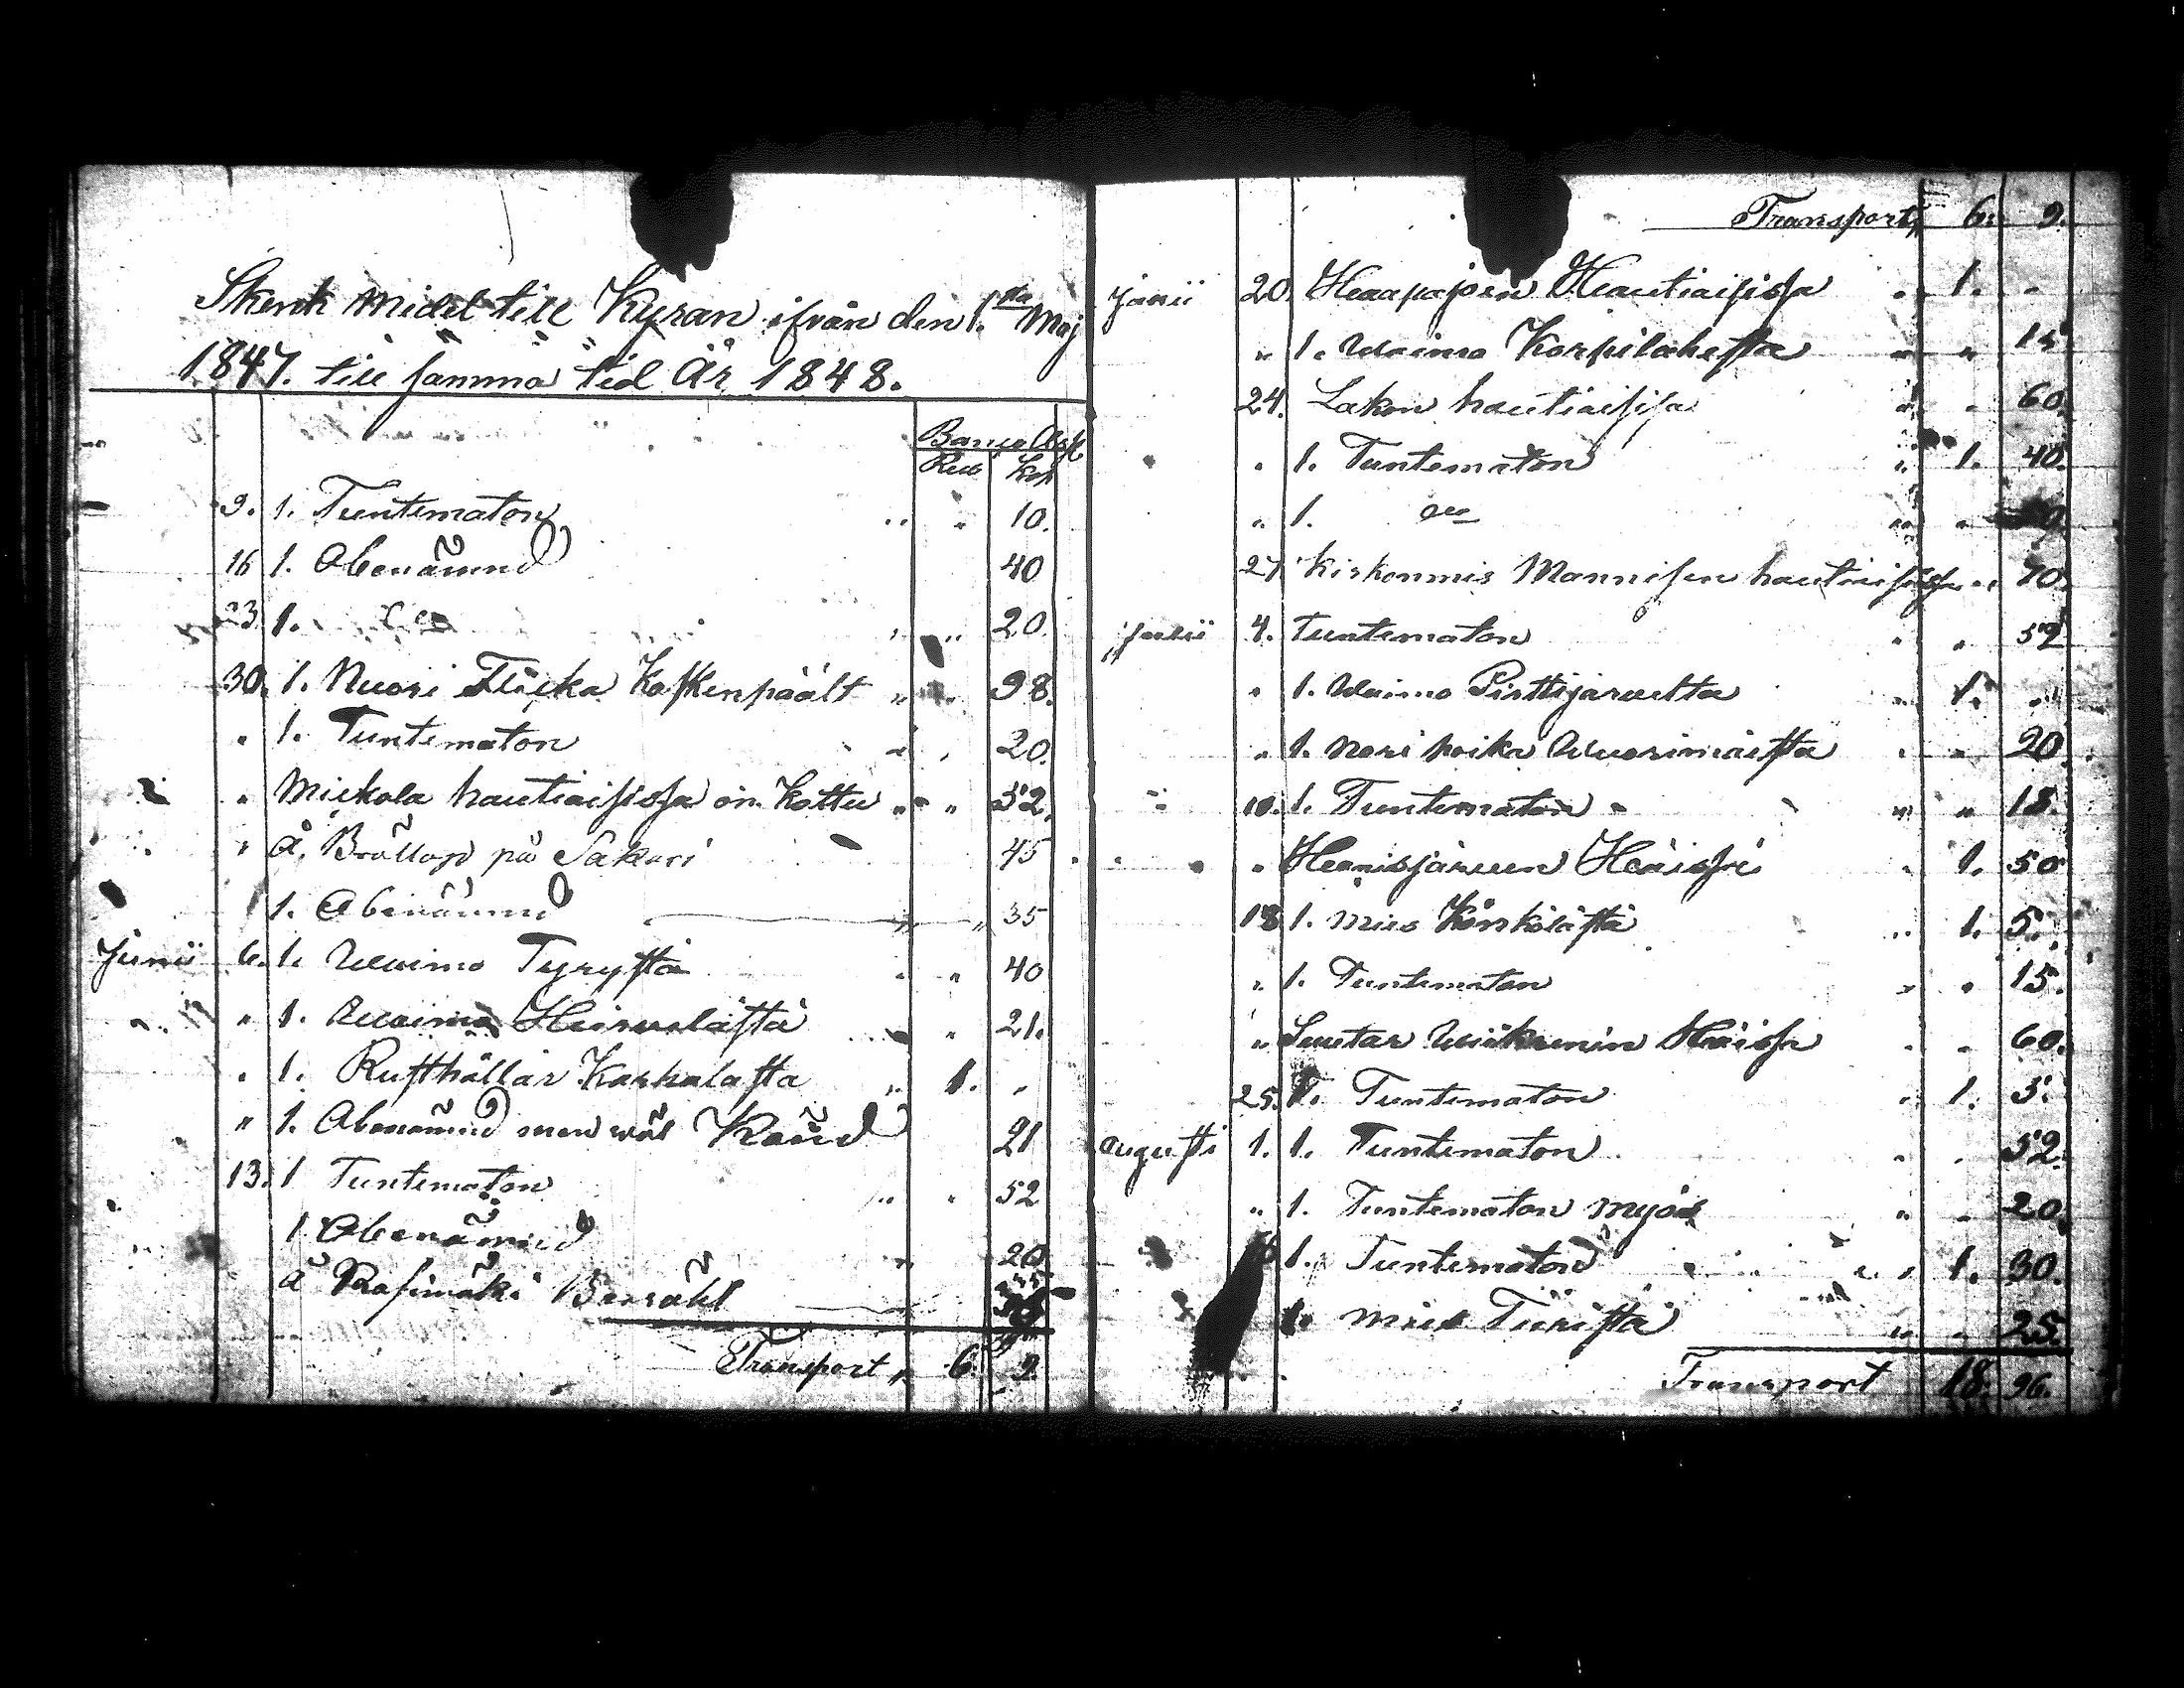 Skenk Midel till Kyran ifrån den 1.sta Maj
1847. till samma tid År 1848.
Banco Assg
Rub Kop
9. 1. Tuntematon " " 10.
16 1. Obenämnd 40
23. 1. " " 20.
30. 1. Nuori Flicka Koskenpäält " " 98.
" 1. Tuntematon " " 20.
" Mickola hautiaisissa on Kottu " " 52.
" Å, Bröllop på Sakari 45
1. Obenämnd " " 35
Junii 6. 1. Uuaimo Tyrystä " " 40
" 1. Uuaimo Hiruelästä " 21.
" 1. Rusthållar Karkalasta " 1. "
" 1. Obenämnd men wäl Känd 21
13. 1 Tuntematon " " 52
1 Obenämnd " 20
å Rasimäki Barsåhl
Transport " 6. 9.
Transport 6. 9.
Junii 20. Haapajoen Hautiaisissa " 1. "
" 1. Uuaimo Korpilahesta " " 15
24. Lakon hautiaisisa " " 60.
" 1. Tuntematon " 1. 40.
" 1. " "
27. Kirkonmis Mannisen hautiaisissa " " 70.
Julii 4. Tuntematon " " 52
" 1. Uuaimo Pirttijäruelta " 1. "
" 1. Nori poika Uuorimäistä " " 20
" 10. 1. Tuntematon " " 18.
" Heenisjäruen Häissä " 1. 50
18 1. Mies Könkölästä " 1. 5.
" 1. Tuntematon " " 15.
" Suutar Häissä " " 60.
25. 1. Tuntematon " 1. 5.
Augusti 1. 1. Tuntematon " " 52.
" 1. Tuntematon myös " " 20.
1. Tuntematon " " 1. 30.
1. mies Tiiristä " " 25.
Transport 18. 96.